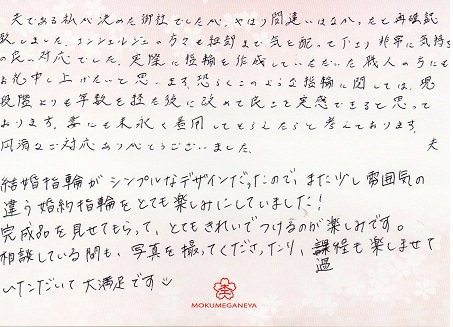 夫である私が決めた御社でしたが、やはり間違いはなかったと再確認
致しました。コンシェルジュの方々も細部まで気を配って下さり非常に気持ち
の良い対応でした。実際に指輪を作成していただいた職人の方にも
お礼申し上げたいと思います。恐らくこのような指輪に関しては、現
段階よりも年数を経た後に改めて良さを実感できると思って
おります。妻にも末永く着用してもらえたらと考えております。
円満なご対応ありがとうございました。 夫
結婚指輪がシンプルなデザインだったので、また少し雰囲気の
違う婚約指輪をとても楽しみにしていました!
完成品を見せてもらって、とてもきれいでつけるのが楽しみです。
相談している間も、写真を撮ってくださったり、課程も楽しませて
過
いただいて大満足です
MOKUMEGANEYA